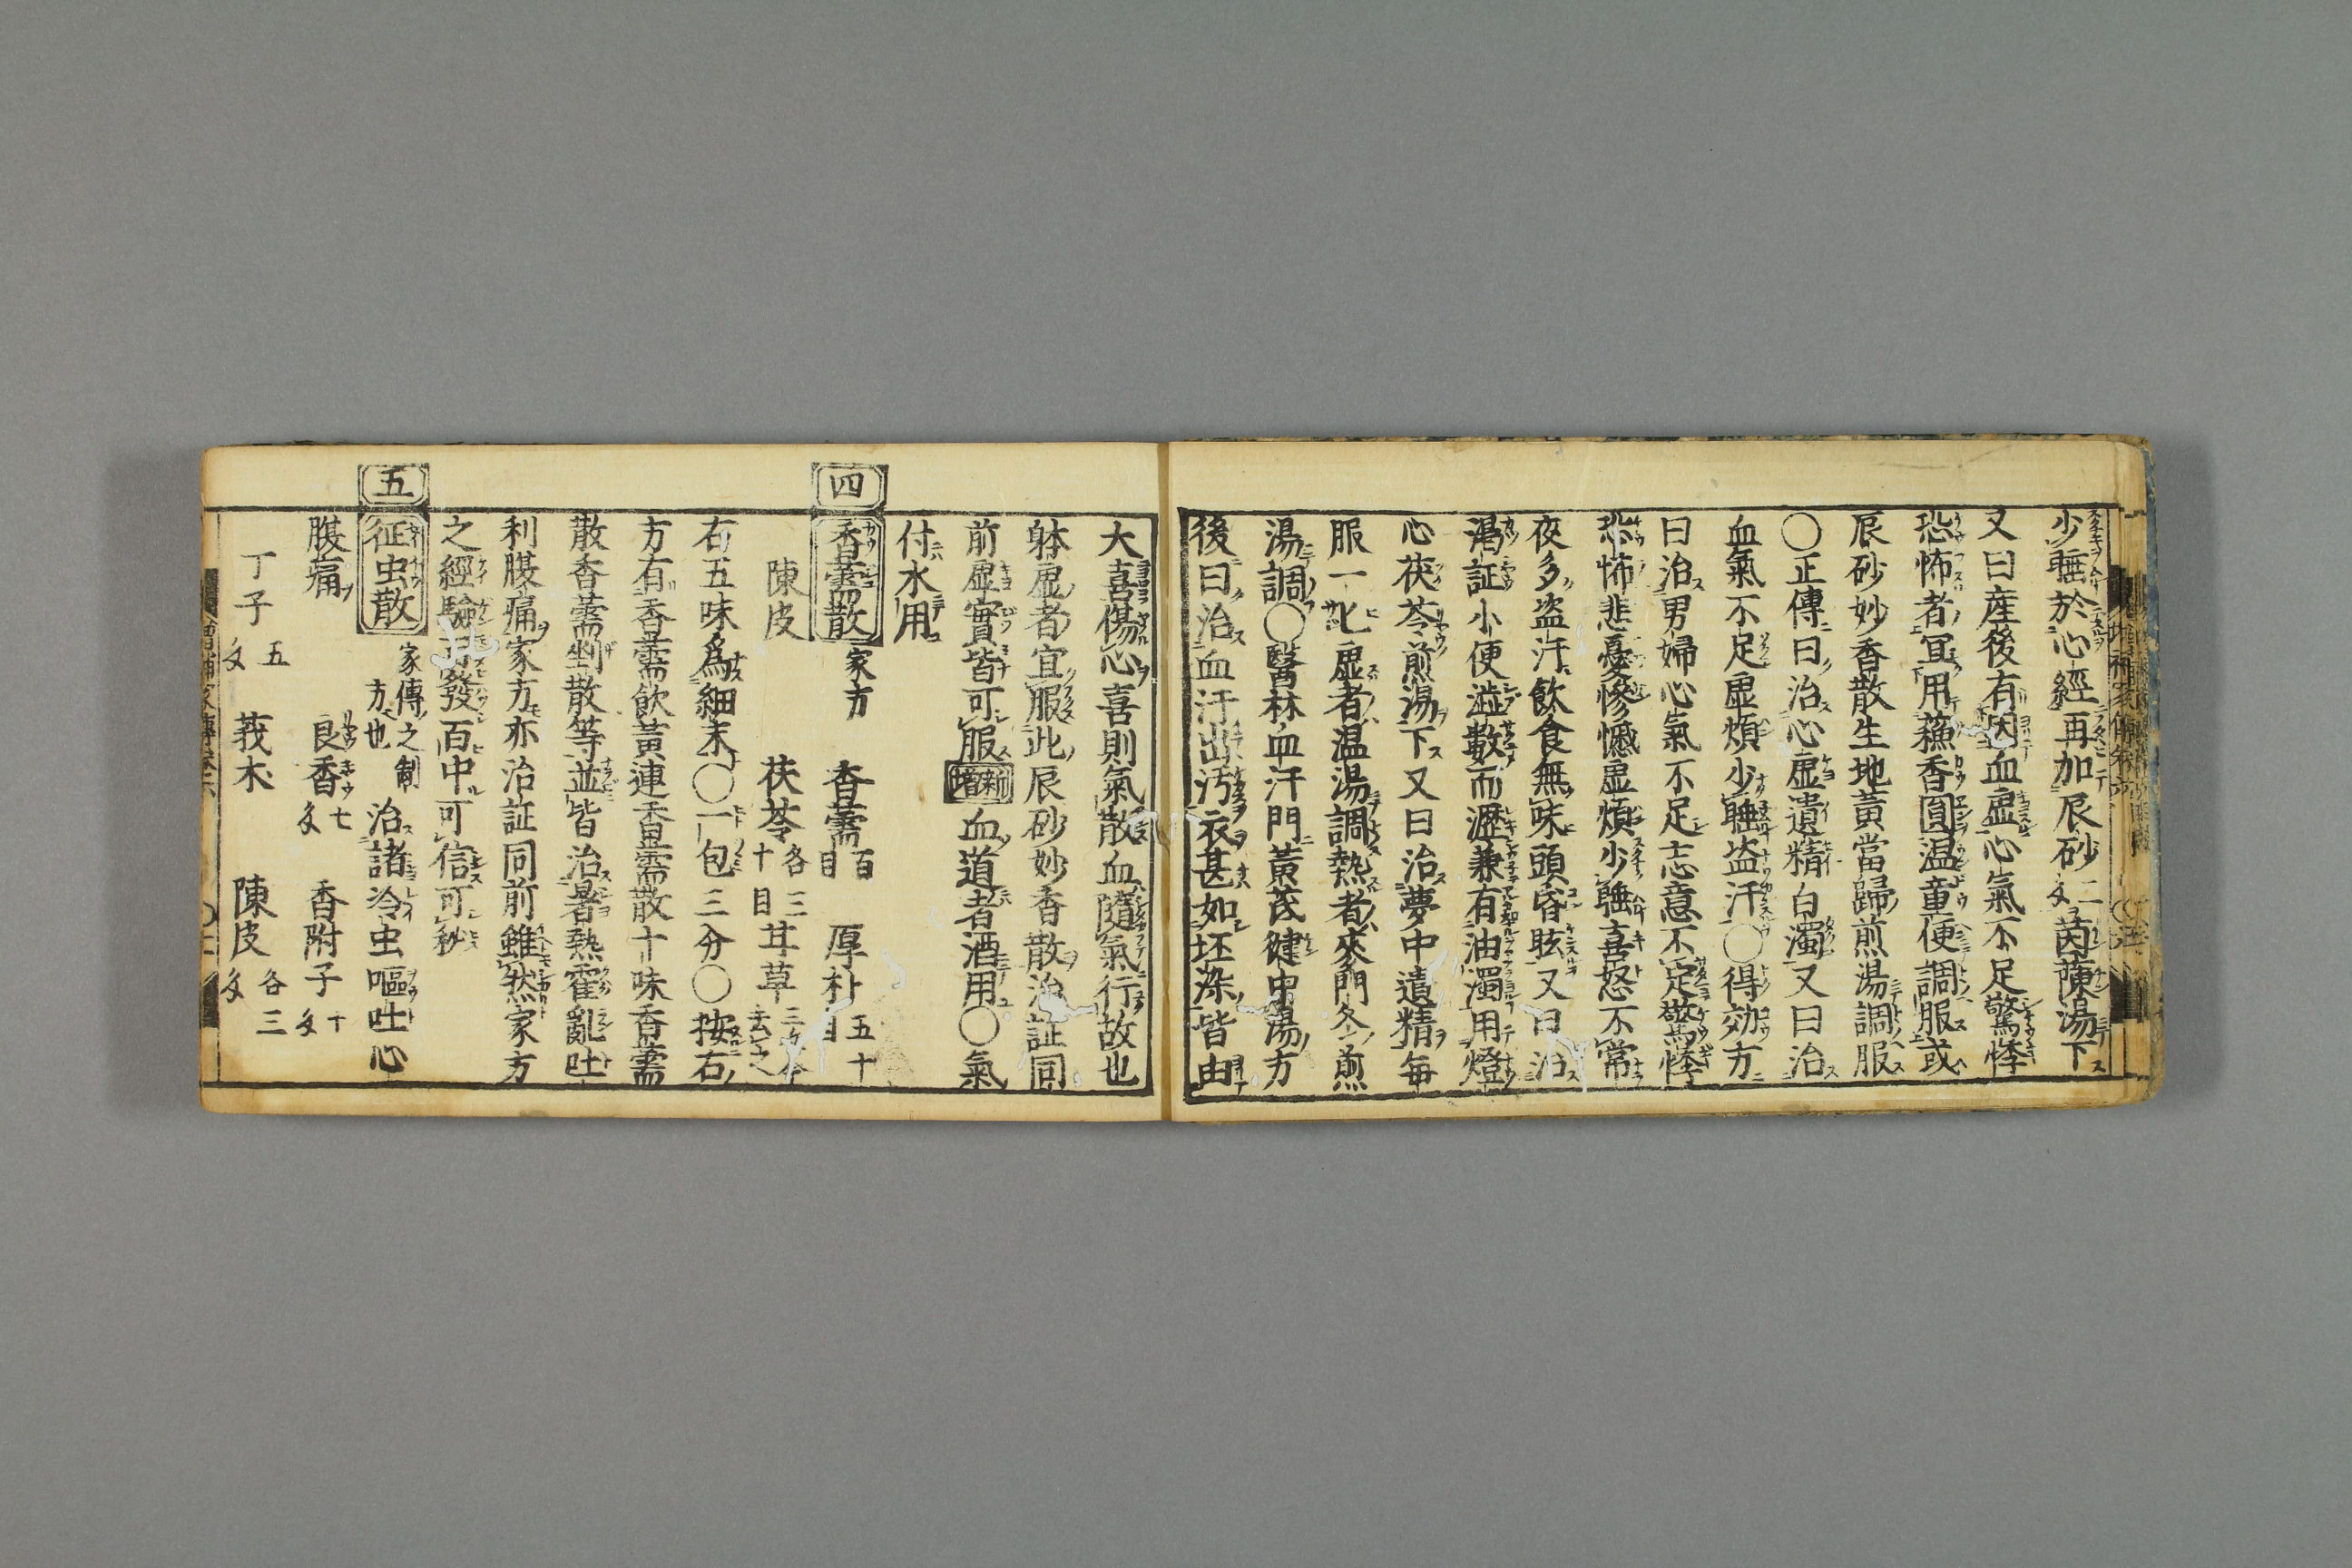 少睡於心經再加辰砂二匁茵蔯湯下
又曰産後有因血虚心氣不足驚悸
恐怖者宜用蘓香圓温童便調服或
辰砂妙香散生地黄當歸煎湯調服
○正傳曰治心虚遺精白濁又曰治
血氣不足虚煩少睡盗汗○得効方
曰治男婦心氣不足志意不定驚悸
恐怖悲憂慘慽虚煩少睡喜怒不常
夜多盗汗飲食無味頭昏眩又曰治
渇証小便澁數而瀝兼有油濁用燈
心茯苓煎湯下又曰治夢中遺精毎
服一匕虚者温湯調熱者麥門冬煎
湯調○醫林血汗門黄芪健中湯方
後曰治血汗出汚衣甚如坯染皆由
大喜傷心喜則氣散血隨氣行故也
躰虚者宜服此辰砂妙香散治証同
前虚實皆可服新増血道者酒用○氣
付水用
四
香薷散 家方 香薷百目 厚朴五十目
陳皮 茯苓各三十目 甘草
右五味爲細末○一包三分○按右
方有香薷飲黄連香薷散十味香薷
散香薷剉散等並皆治暑熱霍亂吐
利腹痛家方亦治証同前雖然家方
之經驗發百中可信可秘
五
征虫散 家傳之制方也 治諸冷虫嘔吐心
腹痛 良香七匁 香附子十匁
丁子五匁 莪朮 陳皮各三匁